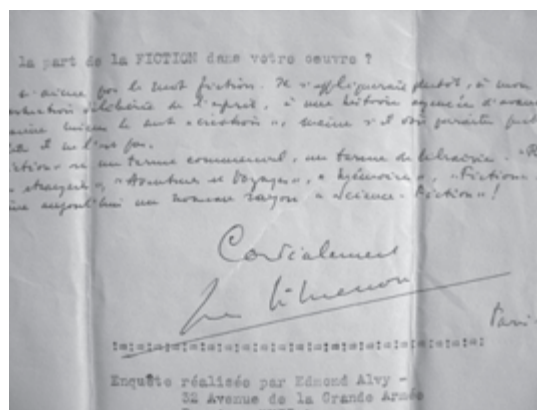 la part de la FICTION dans votre oeuvre ?
n'aime pas le mot fiction. Il s'appliquerait plutôt, à mon
délibérée de l'esprit, à une histoire agencée d'avance
mieux le mot "création", même s'il doit paraître
il ne l'est pas.
est un terme commercial, un terme de librairie. "
étrangers", "Aventures et Voyages", "Mémoires", "Fiction"
aujourd'hui un nouveau rayon "Science-Fiction"!
Cordialement
Paris
Enquête réalisée par Edmond Alvy -
32 Avenue de la Grande Armée